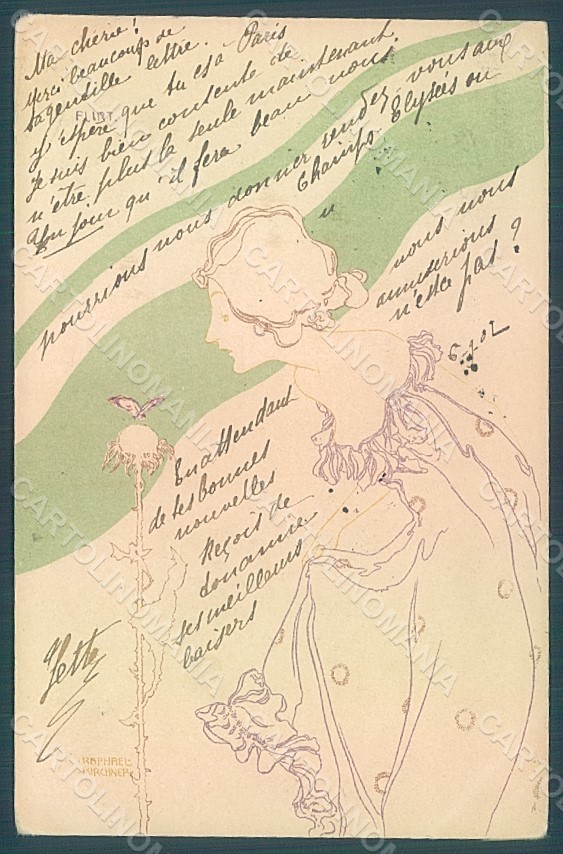 Ma chérie!
Merci beaucoup de
ta gentille lettre.
FLIRT.
J'espère que tu es a Paris
Je suis bien contente de
n'être plus la seule maintenant.
Un jour qu'il fera beau nous
pourrions nous donner rendez vous aux
Champs Elysées ou
nous nous
amuserions
n'est ce pas?
6 02
En attendant
de tes bonnes
nouvelles
Reçois de
ton amie
ses meilleurs
baisers
Yette
RAPHAEL
KIRCHNER
CARTOLINOMANIA